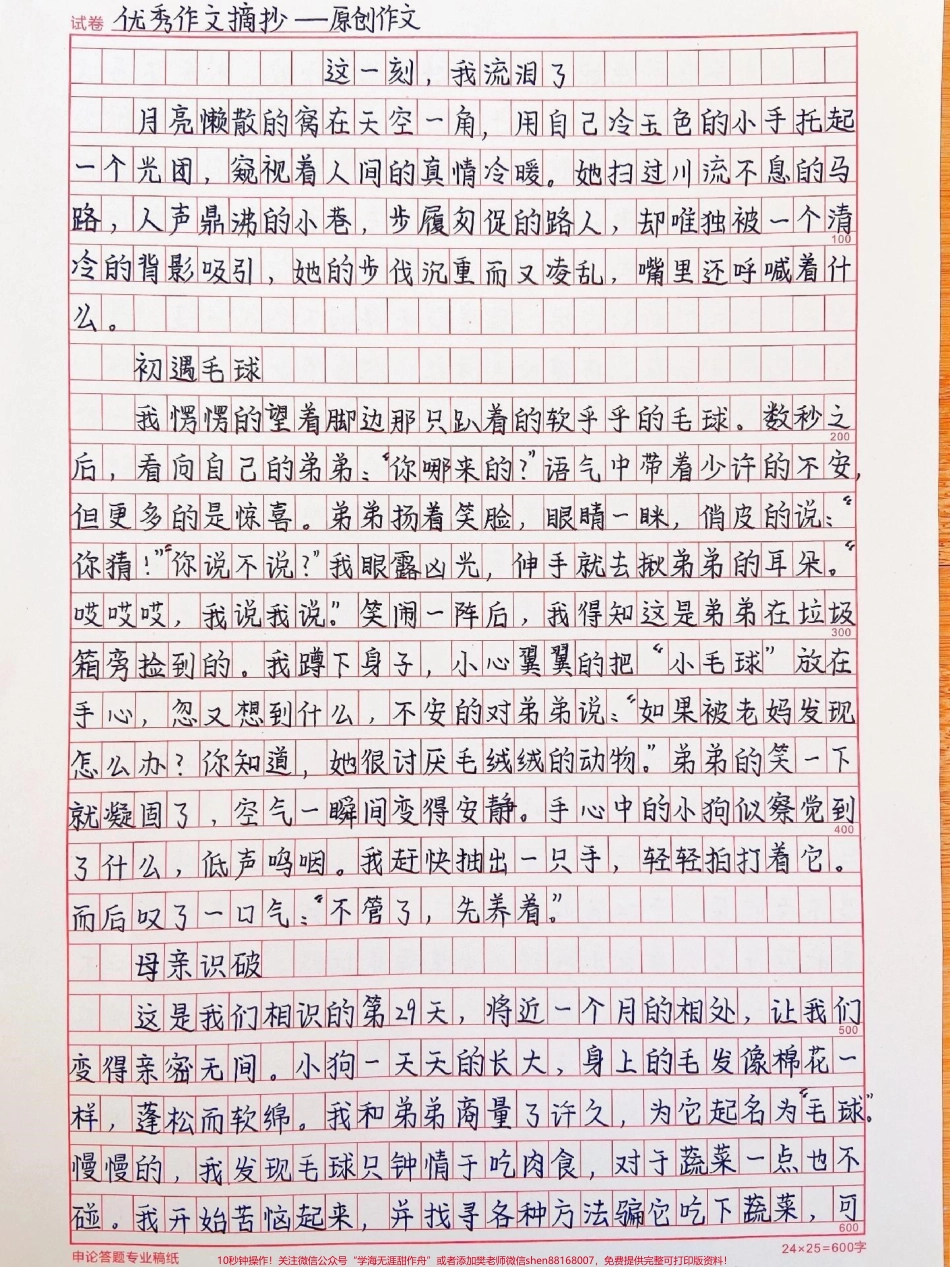 试卷 优秀作文摘抄——原创作文
这一刻，我流泪了
月亮懒散的窝在天空一角，用自己冷玉色的小手托起
一个光团，窥视着人间的真情冷暖。她扫过川流不息的马
路，人声鼎沸的小巷，步履匆促的路人，却唯独被一个清
100
冷的背影吸引，她的步伐沉重而又凌乱，嘴里还呼喊着什
么。
初遇毛球
我愣愣的望着脚边那只趴着的软乎乎的毛球。数秒之
200
后，看向自己的弟弟：“你哪来的？”语气中带着少许的不安，
但更多的是惊喜。弟弟扬着笑脸，眼睛一眯，俏皮的说：“
你猜！”“你说不说？”我眼露凶光，伸手就去揪弟弟的耳朵。“
哎哎哎，我说我说。”笑闹一阵后，我得知这是弟弟在垃圾
300
箱旁捡到的。我蹲下身子，小心翼翼的把“小毛球”放在
手心，忽又想到什么，不安的对弟弟说：“如果被老妈发现
怎么办？你知道，她很讨厌毛绒绒的动物。”弟弟的笑一下
就凝固了，空气一瞬间变得安静。手心中的小狗似察觉到
400
了什么，低声呜咽。我赶快抽出一只手，轻轻拍打着它。
而后叹了一口气：“不管了，先养着。”
母亲识破
这是我们相识的第29天，将近一个月的相处，让我们
500
变得亲密无间。小狗一天天的长大，身上的毛发像棉花一
样，蓬松而软绵。我和弟弟商量了许久，为它起名为“毛球。”
慢慢的，我发现毛球只钟情于吃肉食，对于蔬菜一点也不
碰。我开始苦恼起来，并找寻各种方法骗它吃下蔬菜，可
600
申论答题专业稿纸 24×25=600字
10秒钟操作！关注微信公众号“学海无涯甜作舟”或者添加樊老师微信shen88168007，免费提供完整可打印版资料！